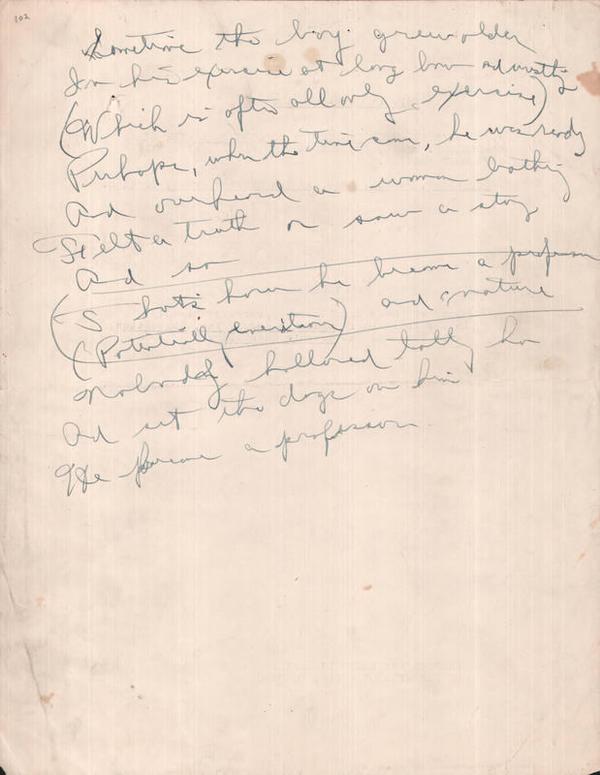 102
Sometime the boy grew older
In his exercise at long bow and wrestling
(Which is after all only exercise)
Perhaps, when the time came, he was ready
And overheard a woman bathing
Felt a truth or saw a stag
And so
(So that's how he became a professor
(Potentially everything) and mature
Nobody hollered tally ho
And set the dogs on him
He became a professor